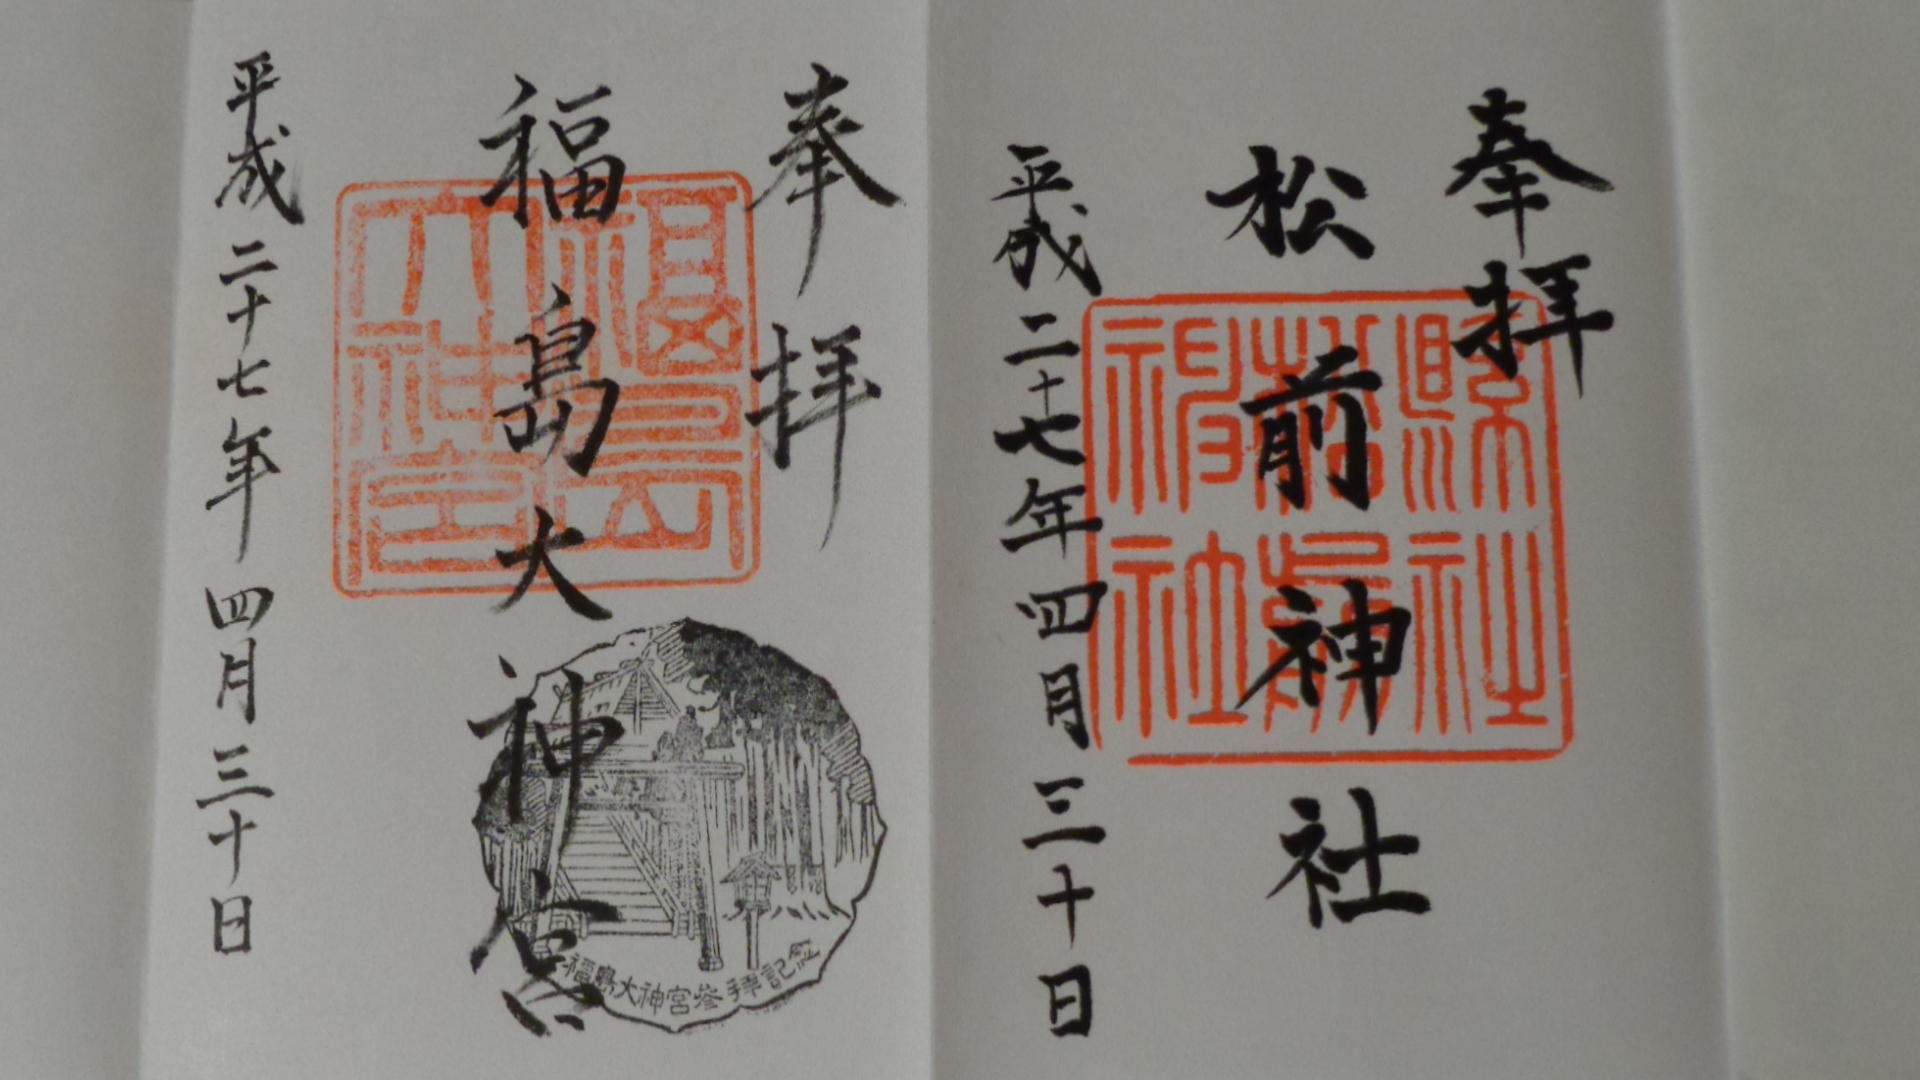 奉拝
松前神社
平成二十七年四月三十日
縣社
松前
神社
奉拝
福島大神宮
平成二十七年四月三十日
福島
大神宮
福島大神宮参拝記念